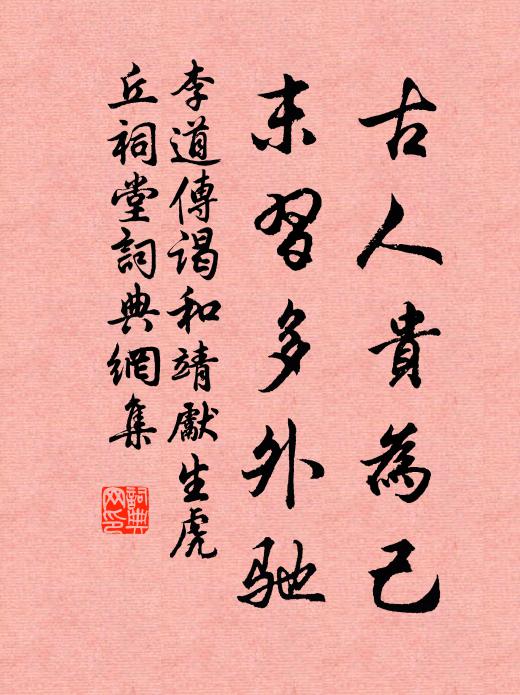 古人貴為己
末習多外馳
李道傳謁和靖獻生虎
丘祠堂詞典網集
詞典网印